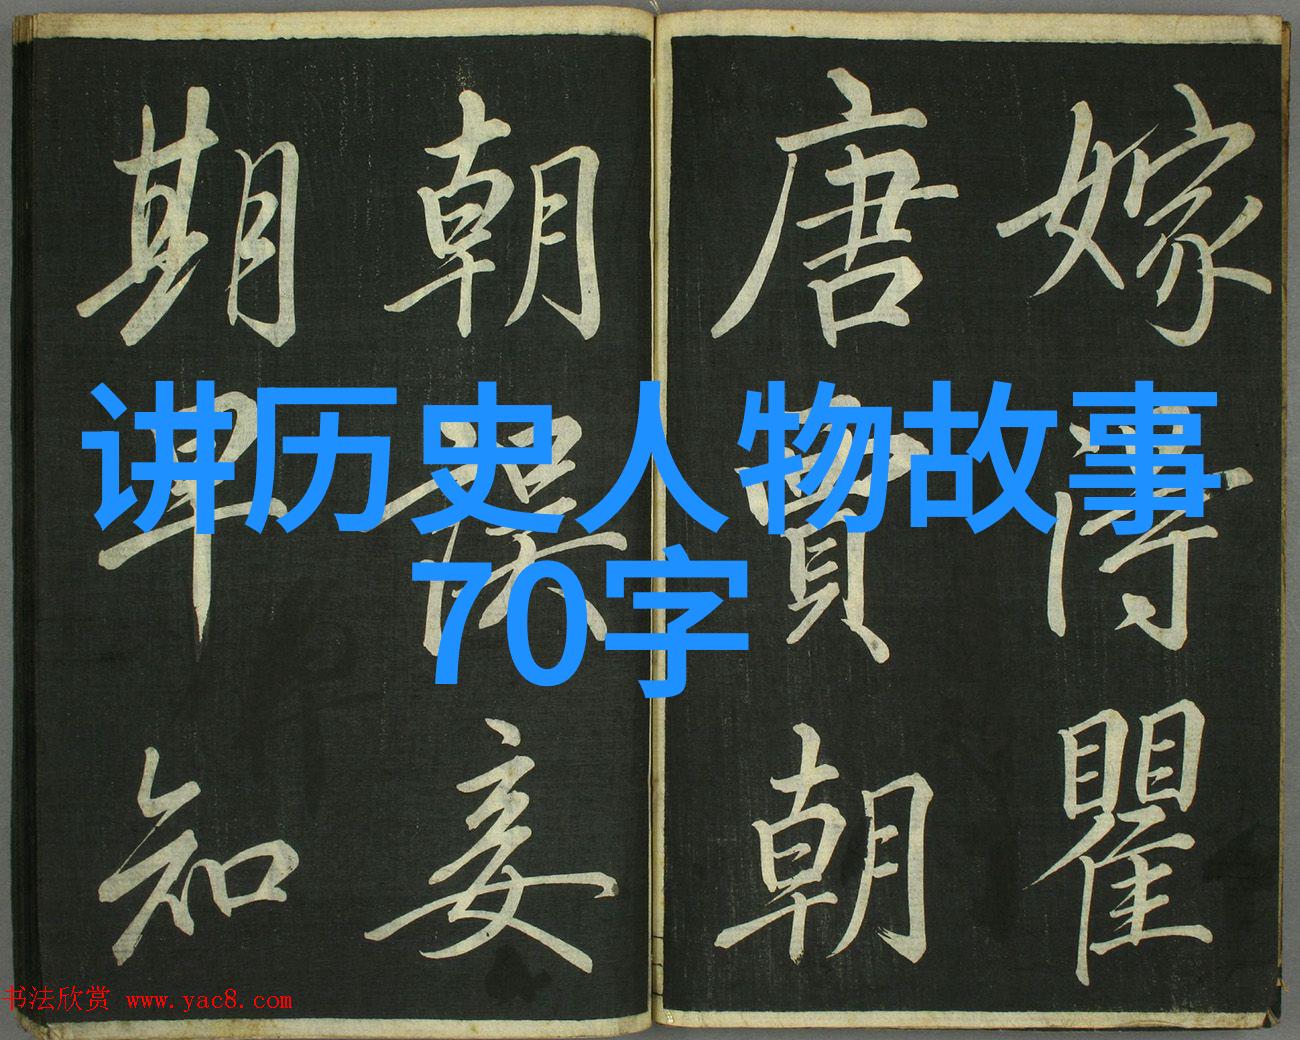 嫁得瞿
唐賈朝
朝誤妾
期早知
讲历史人物故事
70字
书法欣赏 www.yac8.com